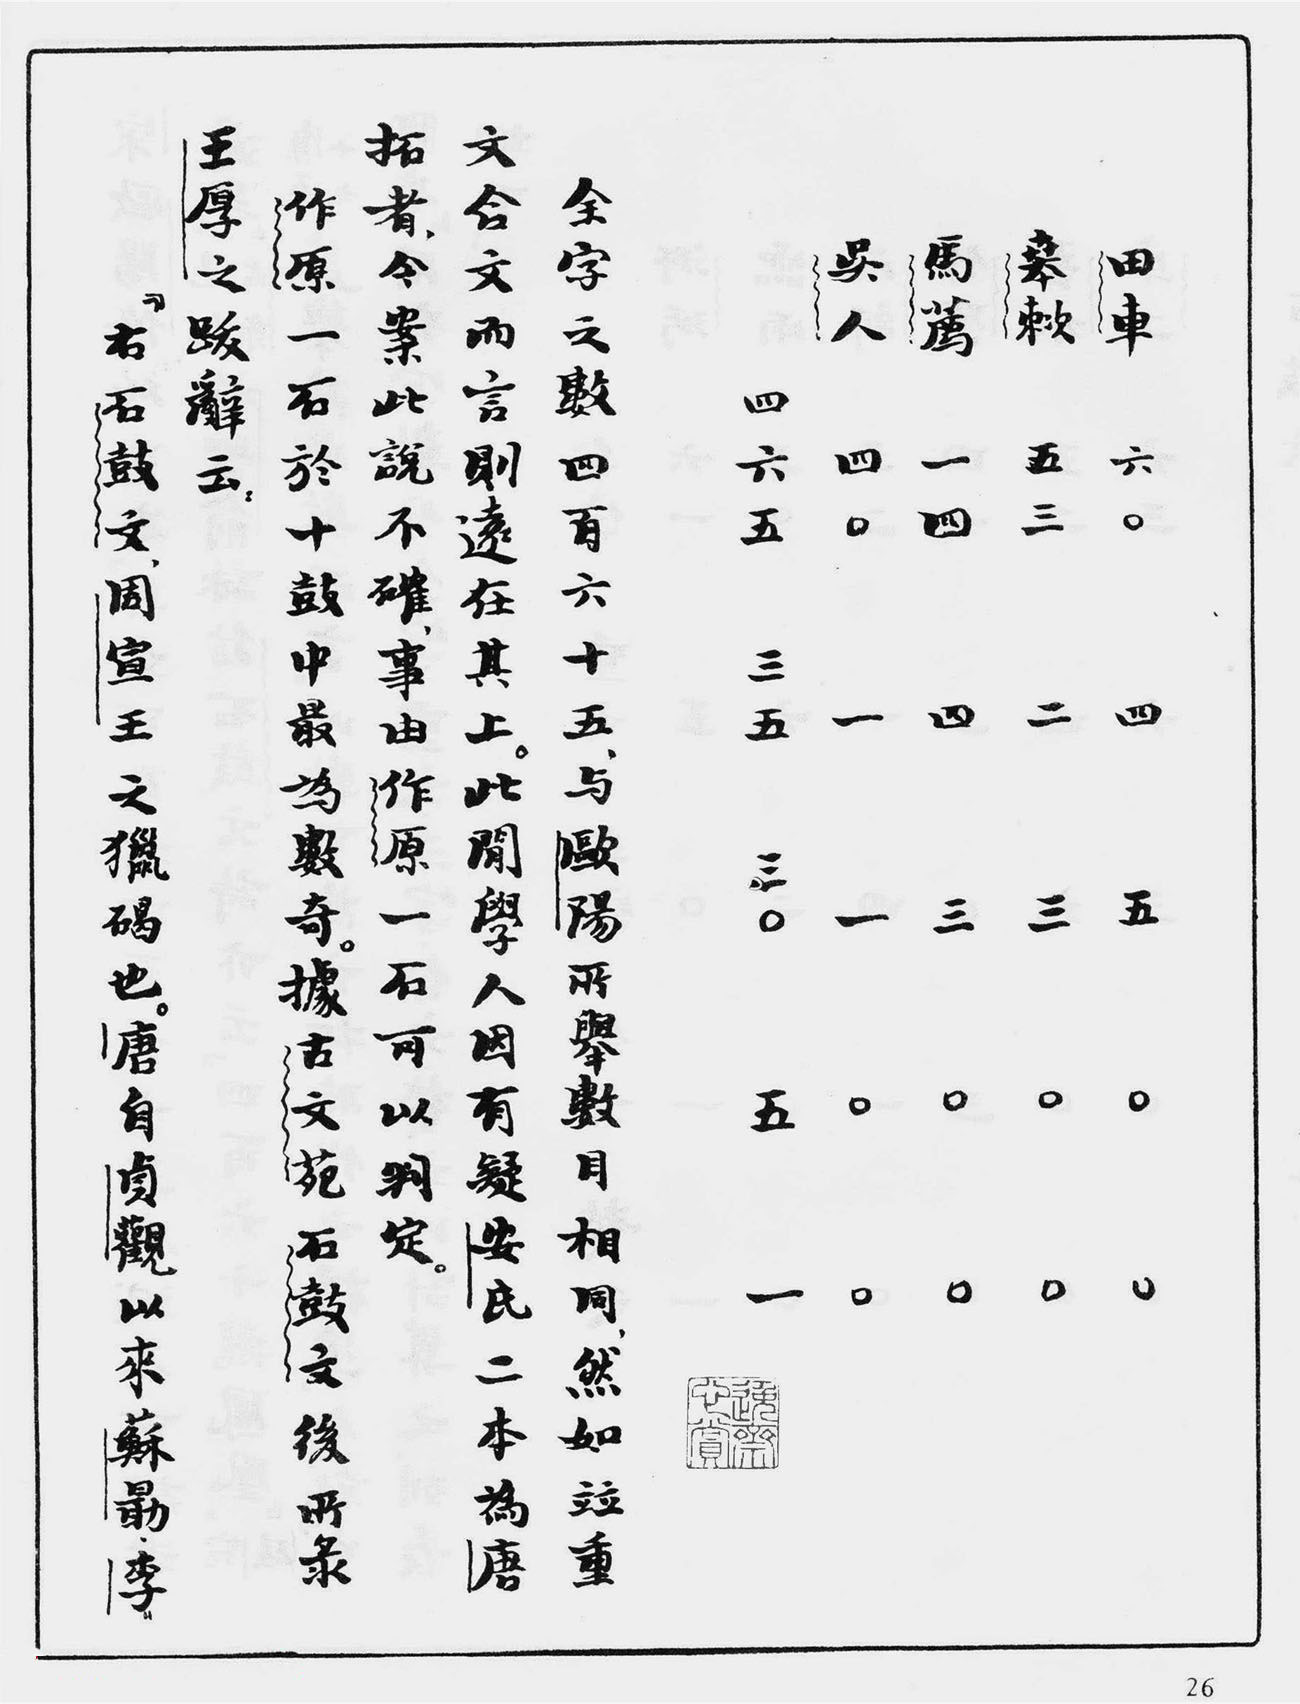 田車 六〇 四 五 〇 〇
㚏敕 五三 二 三 〇 〇
馬薦 一四 四 三 〇 〇
吳人 四〇 一 一 〇 〇
四六五 三五 三〇 五 一
全字之數四百六十五、与歐陽所舉數目相同、然如竝重
文合文而言則遠在其上。此閒學人因有疑安氏二本為唐
拓者、今案此說不確、事由作原一石可以判定。
作原一石於十鼓中最為數奇。據古文苑石鼓文後所錄
王厚之跋辭云：
「右石鼓文、周宣王之獵碣也。唐自貞觀以來蘇勗·李
26